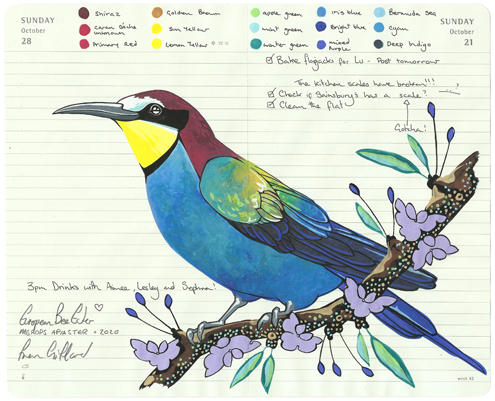 SUNDAY
October
28
Shiraz
Golden Brown
Sun Yellow
Primary Red
Lemon Yellow
apple green
iris blue
Bermuda Sea
mint green
Bright blue
Cyan
water green
mixed Purple
Deep Indigo
SUNDAY
October
21
Bake flapjacks for Lu - Post tomorrow
The kitchen scales have broken!!!
Check if Sainsbury's has a scale?
Clean the flat
Gotcha!
3pm Drinks with Aimee, Lesley and Sophina!
European Bee Eater
MEROPS APIASTER • 2020